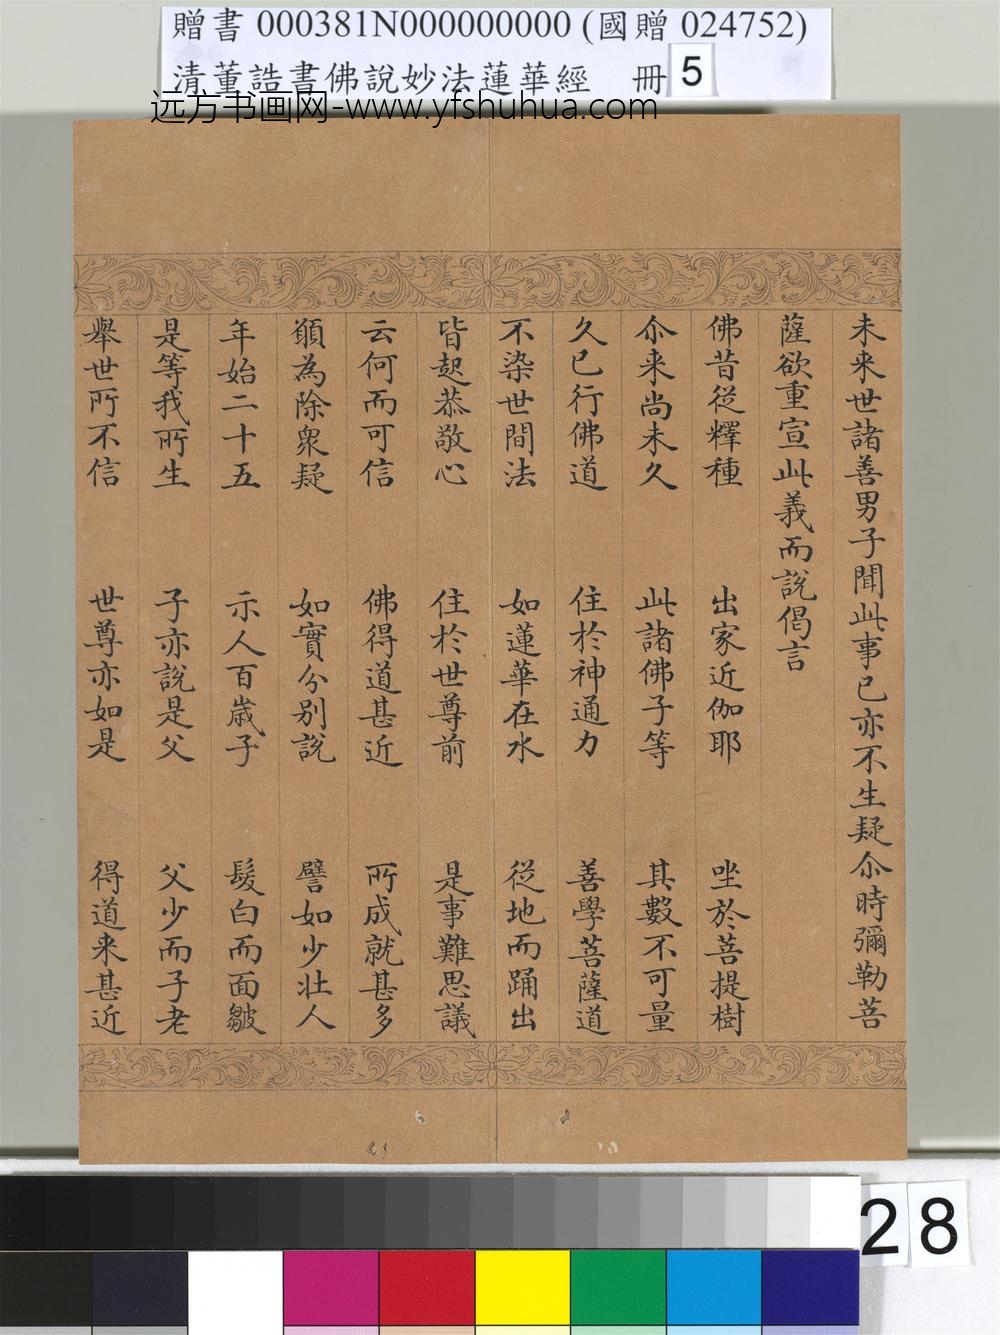 贈書 000381N000000000 (國贈 024752)
清董誥書佛說妙法蓮華經 冊 5
远方书画网-www.yfshuhua.com
未来世諸善男子聞此事已亦不生疑尒時彌勒菩
薩欲重宣此義而說偈言
佛昔從釋種 出家近伽耶 坐於菩提樹
尒来尚未久 此諸佛子等 其數不可量
久已行佛道 住於神通力 善學菩薩道
不染世間法 如蓮華在水 從地而踊出
皆起恭敬心 住於世尊前 是事難思議
云何而可信 佛得道甚近 所成就甚多
願為除眾疑 如實分別說 譬如少壯人
年始二十五 示人百歲子 髮白而面皺
是等我所生 子亦說是父 父少而子老
舉世所不信 世尊亦如是 得道来甚近
28